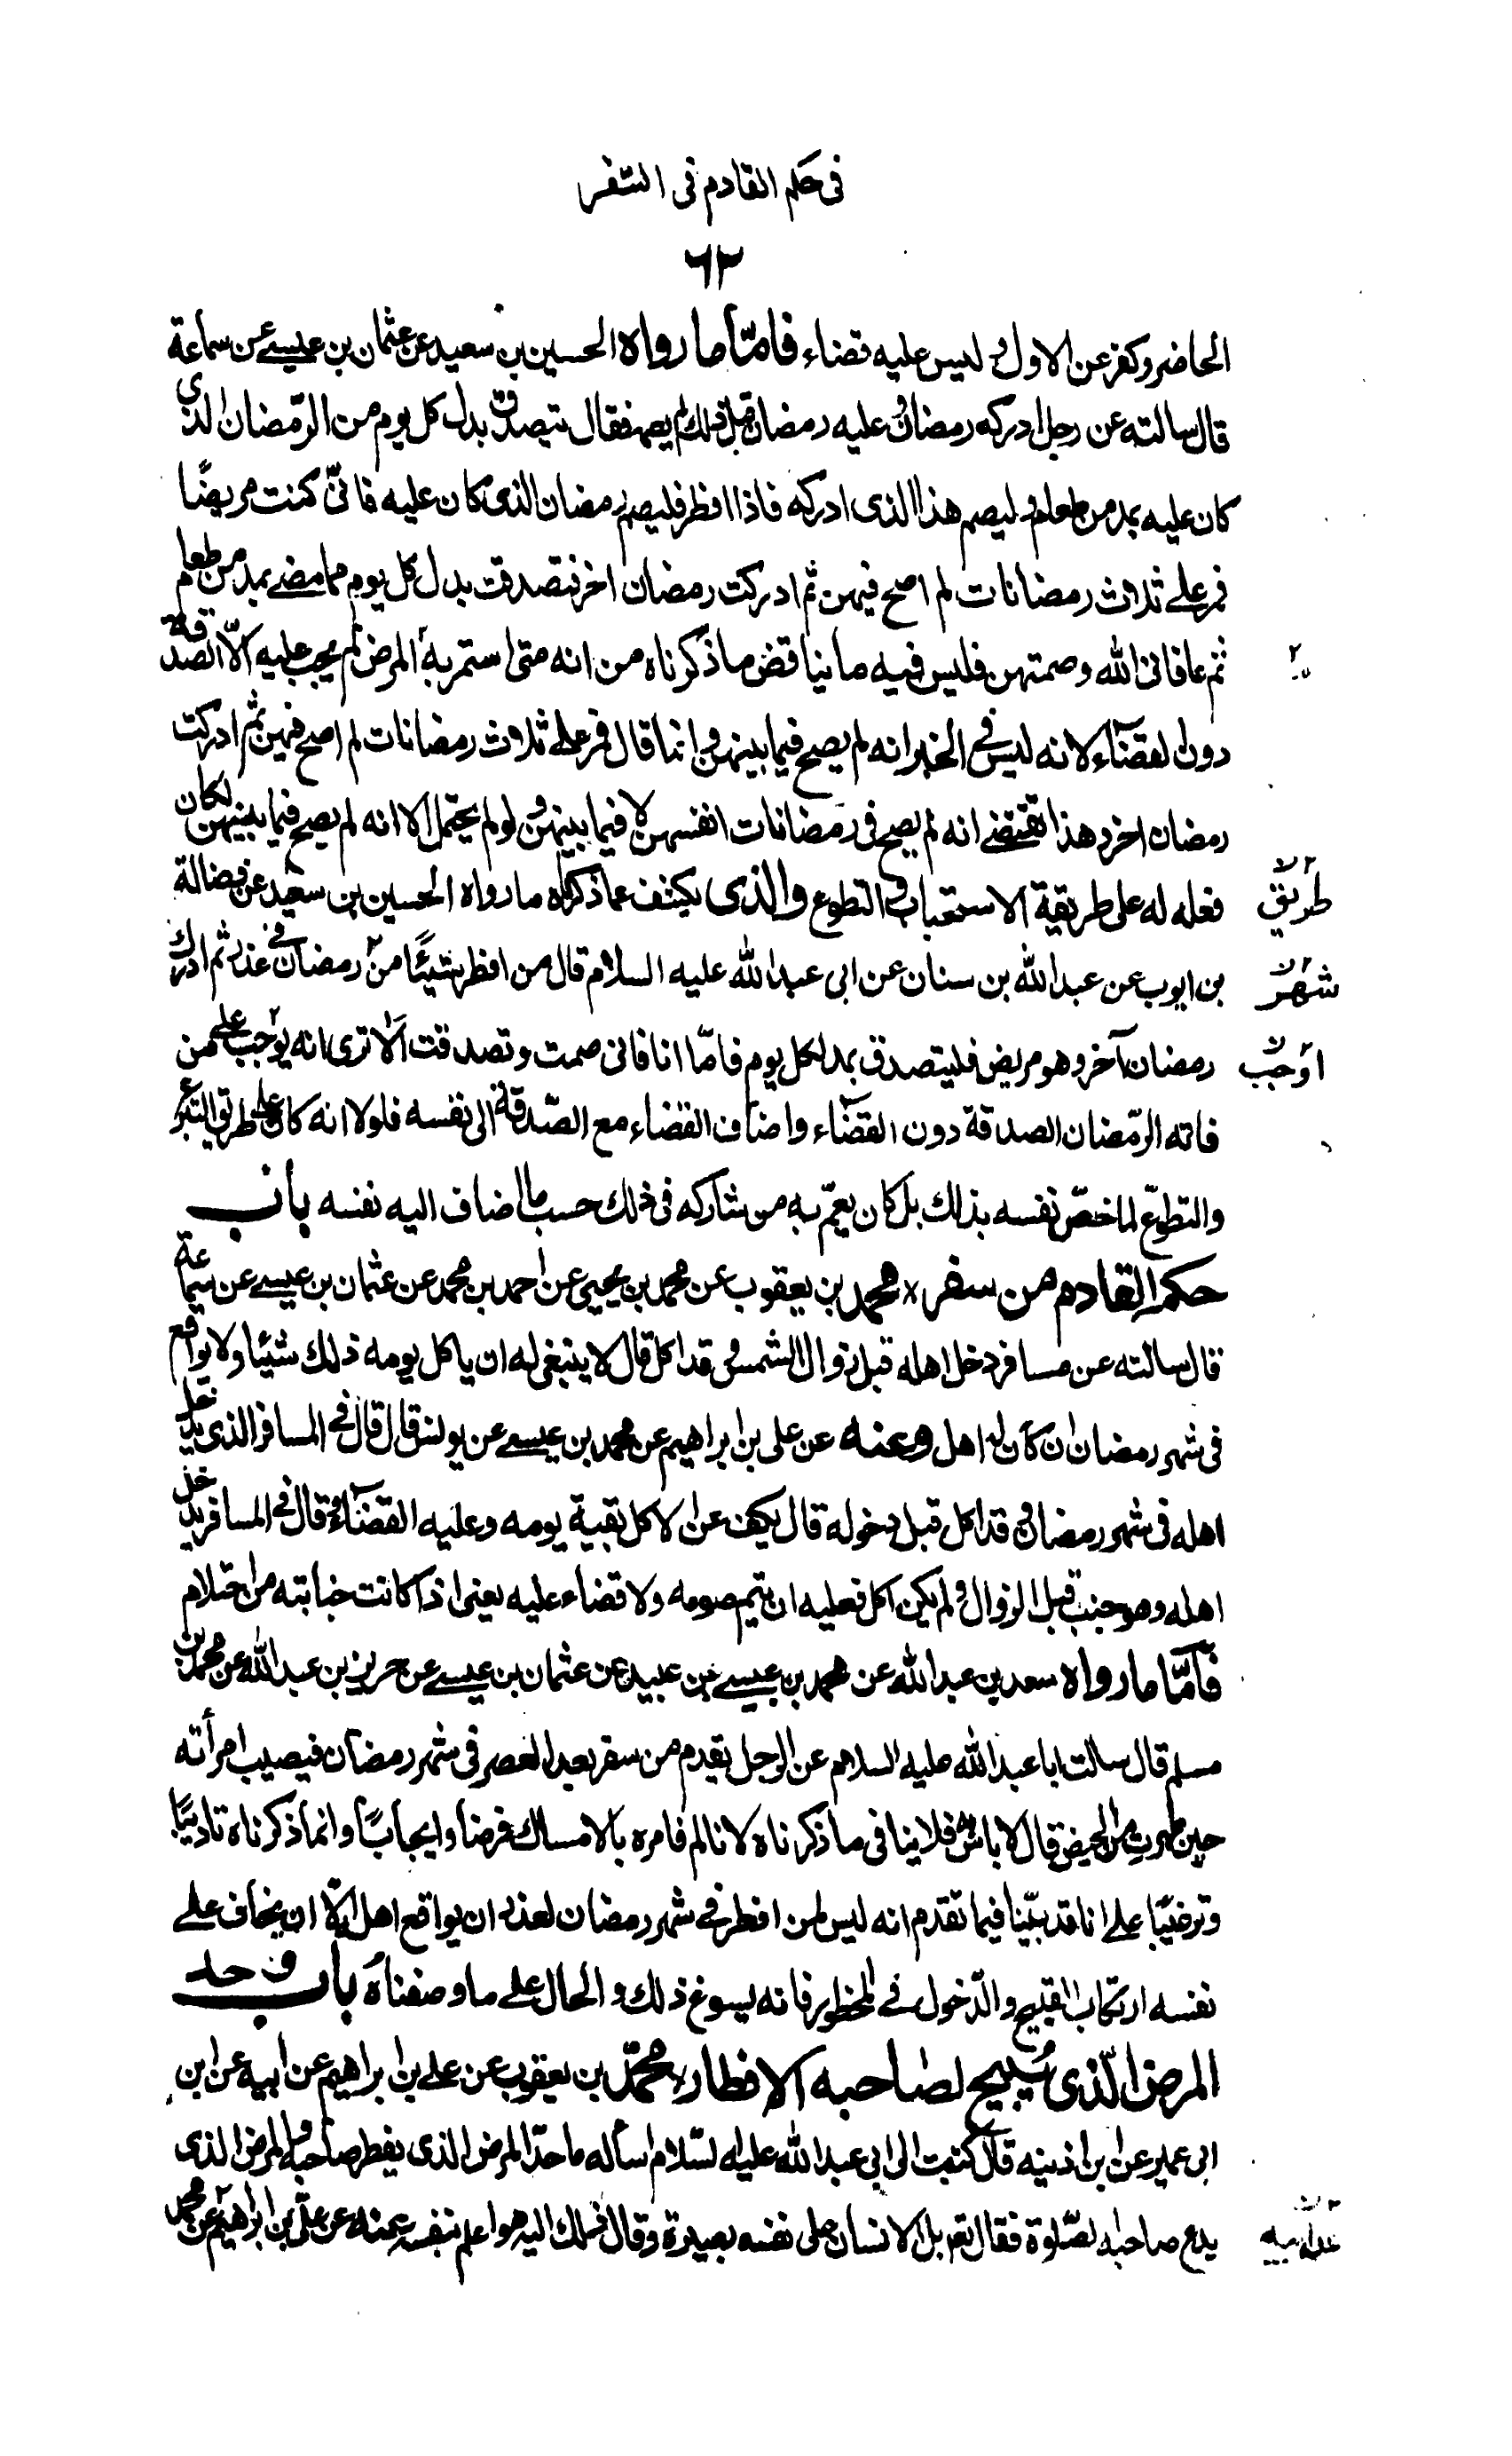 فى حكم القادم فى السفر
٦٣
الحاضر وكفر عن الاول و ليس عليه قضاء فامّا ما رواه الحسين بن سعيد عن عثمان بن عيسى عن سماعة
قال سالته عن رجل ادركه رمضان و عليه رمضان قبل ذلك لم يصمه فقال يتصدق بدل كل يوم من الرّمضان الذى
كان عليه بمد من طعام و ليصم هذا الذى ادركه فاذا افطر فليصم رمضان الذى كان عليه فانّى كنت مريضًا
فمر على ثلاث رمضانات لم اصح فيهن ثم ادركت رمضان اخر فتصدقت بدل كل يوم مما مضى بمد من طعام
ثم عافانى الله وصمتهن فليس فيه ما ينا قض ما ذكرناه من انه متى استمر به المرض لم يجب عليه الاّ الصدقة
دون القضاء لانه ليس فى الخبر انه لم يصح فيما بينهن و انما قال فمر على ثلاث رمضانات لم اصح فيهن ثم ادركت
رمضان اخر و هذا يقتضى انه لم يصح فى رمضانات انفسهن لا فيما بينهن و لو لم يحتمل الا انه لم يصح فيما بينهن لكان
فعله له على طريقة الاستحباب و التطوع والذى يكشف عما ذكرناه ما رواه الحسين بن سعيد عن فضالة
طريق
بن ايوب عن عبد الله بن سنان عن ابى عبد الله عليه السلام قال من افطر شيئًا من رمضان فى عذر ثم ادرك
شهر
رمضان آخر وهو مريض فليتصدق بمد لكل يوم فامّا انا فانى صمت وتصدقت الا ترى انه يوجب على من
اوجب
فاته الرّمضان الصدقة دون القضاء واضاف القضاء مع الصّدقة الى نفسه فلولا انه كان على طريق التبرع
والتطوّع لما خصّ نفسه بذلك بل كان يعمّ به من شاركه فى ذلك حسب ما اضاف اليه نفسه باب
حكم القادم من سفر محمد بن يعقوب عن محمد بن يحيى عن احمد بن محمد عن عثمان بن عيسى عن سماعة
قال سالته عن مسافر دخل اهله قبل زوال الشمس و قد اكل قال لا ينبغى له ان ياكل يومه ذلك شيئا ولا يواقع
فى شهر رمضان ان كان له اهل وعنه عن على بن ابراهيم عن محمد بن عيسى عن يونس قال قال فى المسافر الذى يدخل
اهله فى شهر رمضان و قد اكل قبل دخوله قال يكف عن الاكل بقية يومه وعليه القضاء و قال فى المسافر يدخل
اهله وهو جنب قبل الزوال و لم يكن اكل فعليه ان يتم صومه ولا قضاء عليه يعنى اذا كانت جنابته من احتلام
فامّا ما رواه سعد بن عبد الله عن محمد بن عيسى بن عبيد عن عثمان بن عيسى عن حريز بن عبد الله عن محمد بن
مسلم قال سالت ابا عبد الله عليه السلام عن الرجل يقدم من سفر بعد العصر فى شهر رمضان فيصيب امرأته
حين طهرت من الحيض قال لا باس به فلا ينا فى ما ذكرناه لانا لم نامره بالامساك فرضا وايجابًا وانما ذكرناه تاديبًا
وترغيبًا على انا قد بيّنا فيما تقدم انه ليس لمن افطر فى شهر رمضان لعذر ان يواقع اهله الاّ ان يخاف على
نفسه ارتكاب القبيح والدّخول فى المحظور فانه يسوغ ذلك و الحال على ما وصفناه باب حد
المرض الّذى يبيح لصاحبه الافطار محمّد بن يعقوب عن على بن ابراهيم عن ابيه عن ابن
ابى عمير عن ابن اذينه قال كتبت الى ابى عبد الله عليه السّلام اساله ما حدّ المرض الذى يفطر صاحبه و المرض الذى
يدع صاحبه الصّلوة فقال بل الانسان على نفسه بصيرة وقال ذلك اليه هو اعلم بنفسه عنه عن علّى بن ابراهيم عن محمد
عن ابيه